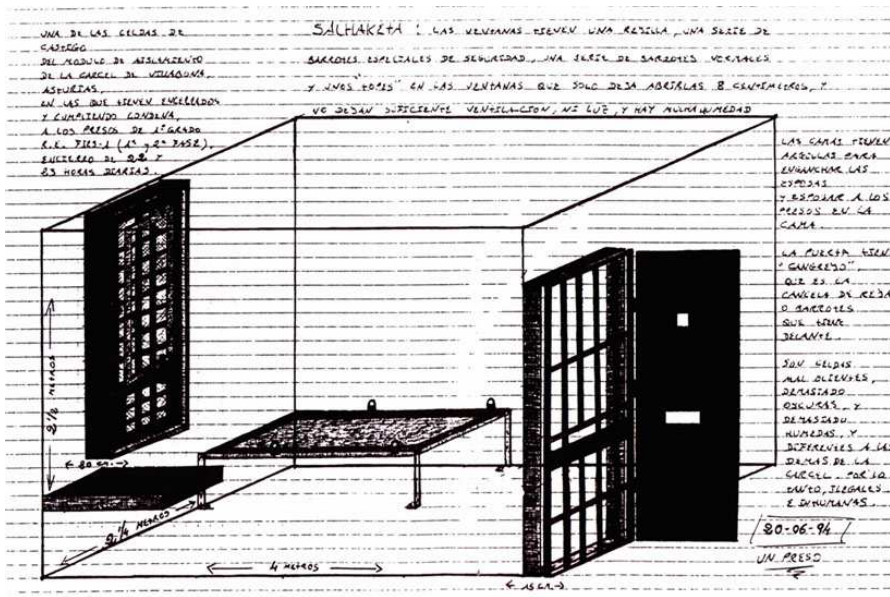 UNA DE LAS CELDAS DE
CASTIGO
DEL MODULO DE AISLAMIENTO
DE LA CARCEL DE VILLABONA,
ASTURIAS,
EN LAS QUE TIENEN ENCERRADOS
Y CUMPLIENDO CONDENA,
A LOS PRESOS DE 1º GRADO
R.E. FIES-1 (1ª y 2ª FASE),
ENCIERRO DE 22 Y
23 HORAS DIARIAS.
SALHAKETA : LAS VENTANAS TIENEN UNA REJILLA, UNA SERIE DE
BARROTES ESPECIALES DE SEGURIDAD, UNA SERIE DE BARROTES NORMALES
Y UNOS "TOPES" EN LAS VENTANAS QUE SOLO DEJA ABRIRLAS 8 CENTIMETROS, Y
NO DEJAN SUFICIENTE VENTILACION, NI LUZ, Y HAY MUCHA HUMEDAD
LAS CAMAS TIENEN
ARGILLAS PARA
ENGANCHAR LAS
ESPOSAS
Y ESPOSAR A LOS
PRESOS EN LA
CAMA.
LA PUERTA TIENE
"CANGREJO",
QUE ES LA
CANCELA DE REJA
O BARROTES
QUE TIENE
DELANTE.
SON CELDAS
MAL OLIENTES,
DEMASIADO
OSCURAS, Y
DEMASIADO
HUMEDAS, Y
DIFERENTES A LAS
DEMAS DE LA
CARCEL. POR LO
TANTO, ILEGALES
E INHUMANAS.
20-06-94
UN PRESO
2 1/2 METROS
80 CM.
2 1/4 METROS
4 METROS
15 CM.